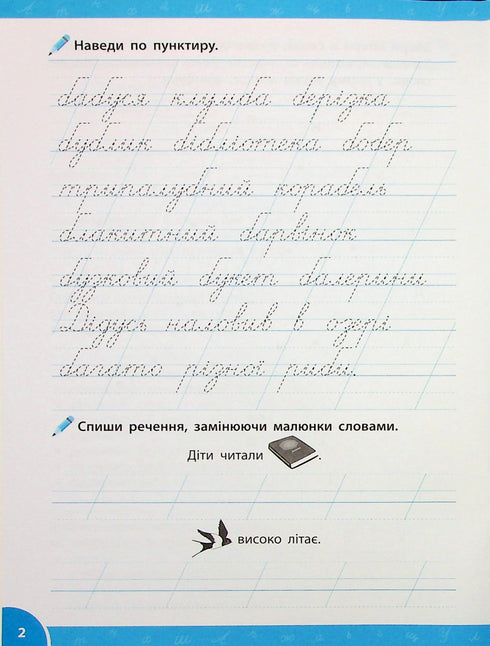 Наведи по пунктиру.
бабуся клумба берізка
бублик бібліотека бобер
трипалубний корабель
блакитний барвінок
бузковий букет балерини
Дідусь наловив в озері
багато різної риби.
Спиши речення, замінюючи малюнки словами.
Діти читали .
високо літає.
2